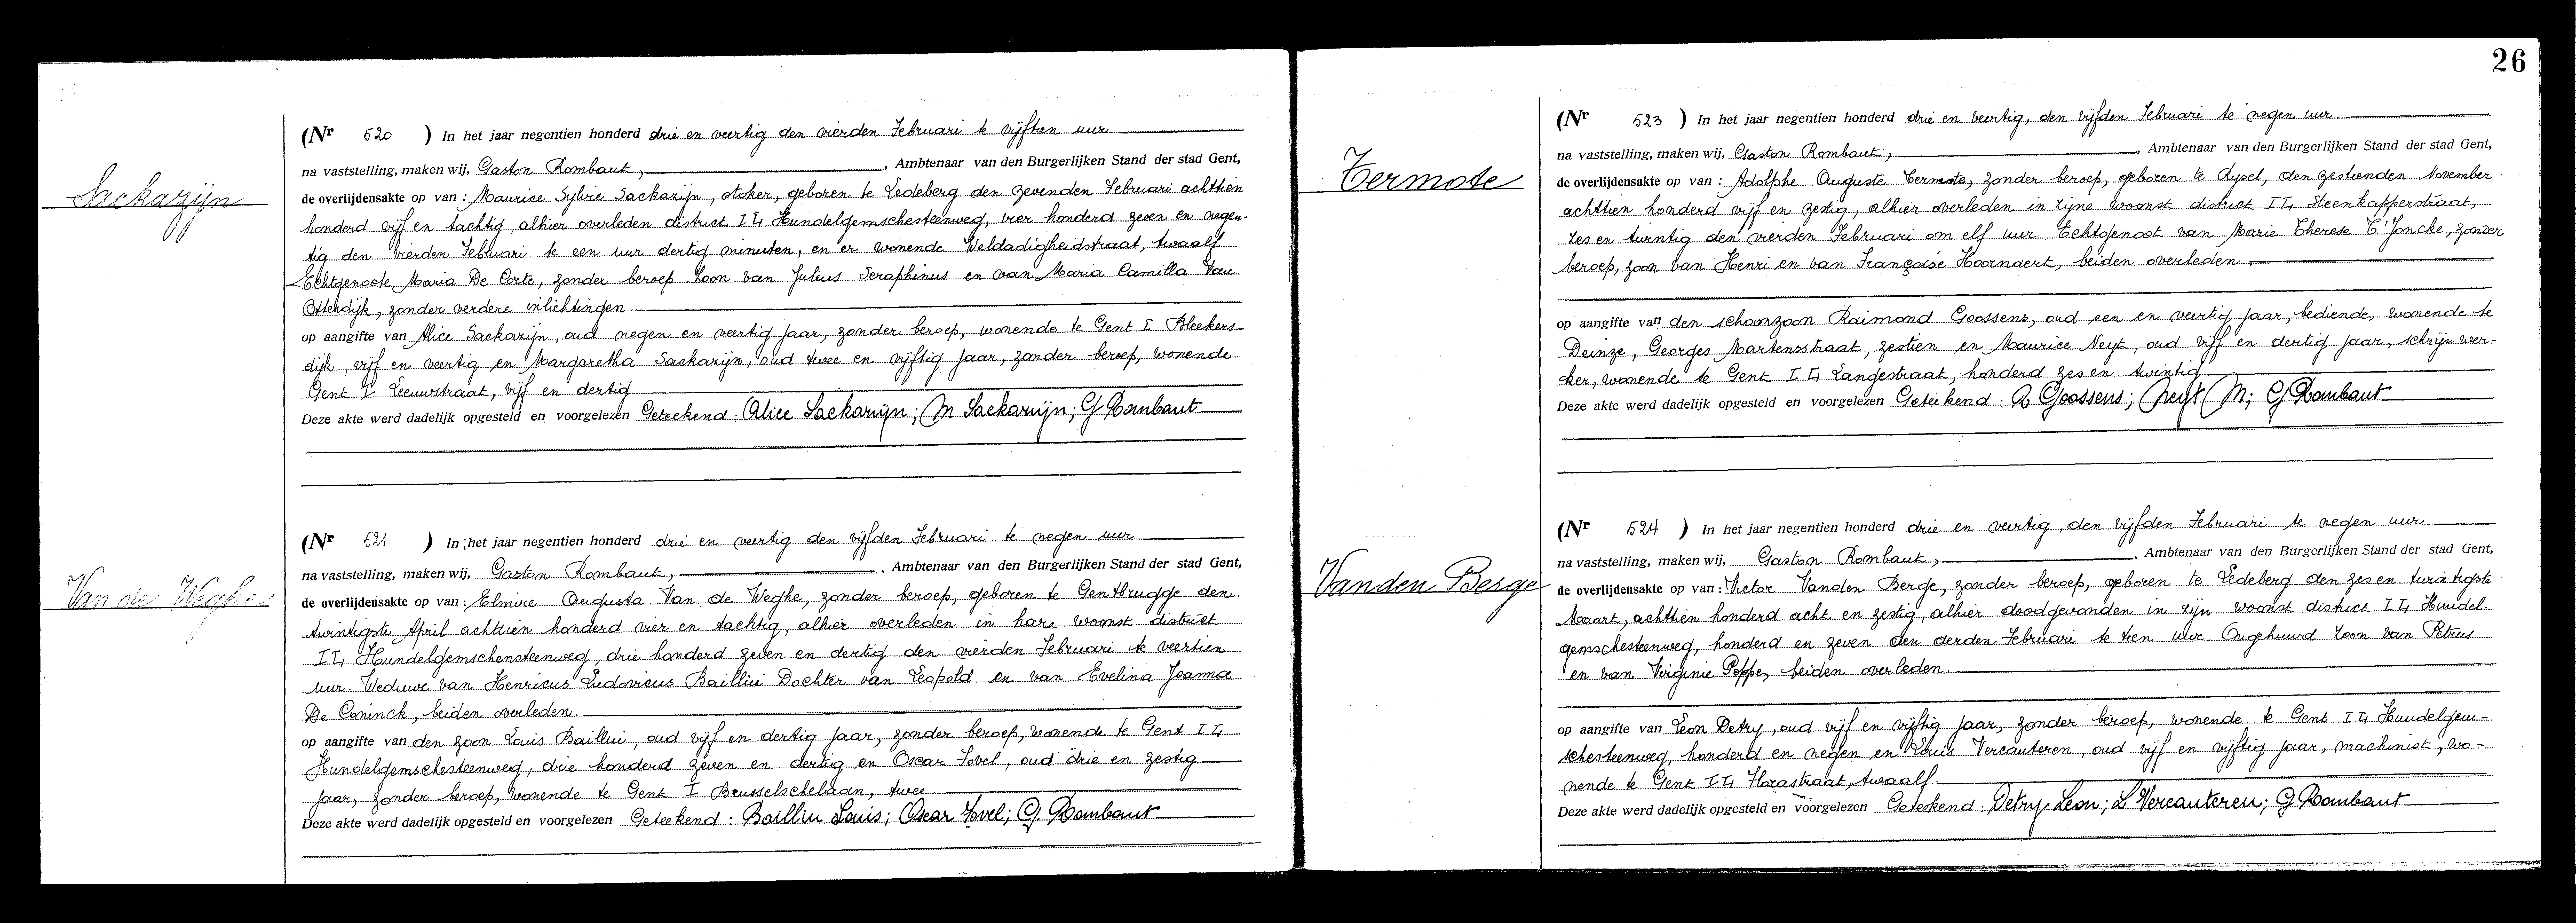 Sackarijn
(Nr 520 ) In het jaar negentien honderd drie en veertig den vierden Februari te vijftien uur
na vaststelling, maken wij, Gaston Rombaut, , Ambtenaar van den Burgerlijken Stand der stad Gent,
de overlijdensakte op van : Maurice Sylvie Sackarijn, stoker, geboren te Ledeberg den zevenden Februari achttien
honderd vijf en tachtig, alhier overleden district II, Hundelgemschesteenweg, vier honderd zeven en negen-
tig den vierden Februari te een uur dertig minuten, en er wonende Weldadigheidstraat, twaalf
Echtgenoote Maria De Corte, zonder beroep Zoon van Julius Seraphinus en van Maria Camilla Van
Otterdijk, zonder verdere inlichtingen
op aangifte van Alice Sackarijn, oud negen en veertig jaar, zonder beroep, wonende te Gent I Bleekers-
dijk, vijf en veertig en Margaretha Sackarijn, oud twee en vijftig jaar, zonder beroep, wonende
Gent I Leeuwstraat, vijf en dertig
Deze akte werd dadelijk opgesteld en voorgelezen Geteekend : Alice Sackarijn; M Sackarijn; G Rombaut
Van de Weghe
(Nr 521 ) In het jaar negentien honderd drie en veertig den vijfden Februari te negen uur
na vaststelling, maken wij, Gaston Rombaut, . Ambtenaar van den Burgerlijken Stand der stad Gent,
de overlijdensakte op van : Elmire Augusta Van de Weghe, zonder beroep, geboren te Gentbrugge den
twintigste April achttien honderd vier en tachtig, alhier overleden in hare woonst district
II, Hundelgemschensteenweg, drie honderd zeven en dertig den vierden Februari te veertien
uur Weduwe van Henricus Ludovicus Bailliu Dochter van Leopold en van Evelina Joanna
De Coninck, beiden overleden
op aangifte van den zoon Louis Bailliu, oud vijf en dertig jaar, zonder beroep, wonende te Gent II,
Hundelgemschesteenweg, drie honderd zeven en dertig en Oscar Fovel, oud drie en zestig
jaar, zonder beroep, wonende te Gent I Brusselschelaan, twee
Deze akte werd dadelijk opgesteld en voorgelezen Geteekend : Bailliu Louis; Oscar Fovel; G. Rombaut
26
Termote
(Nr 523 ) In het jaar negentien honderd drie en veertig, den vijfden Februari te negen uur
na vaststelling, maken wij, Gaston Rombaut, , Ambtenaar van den Burgerlijken Stand der stad Gent,
de overlijdensakte op van : Adolphe Auguste Termote, zonder beroep, geboren te Rysel, den zestienden November
achttien honderd vijf en zestig, alhier overleden in zijne woonst district II, Steenkapperstraat,
zes en twintig den vierden Februari om elf uur Echtgenoot van Marie Therese T'Joncke, zonder
beroep, zoon van Henri en van Françoise Hoornaert, beiden overleden
op aangifte van den schoonzoon Raimond Goossens, oud een en veertig jaar, bediende, wonende te
Deinze, Georges Martensstraat, zestien en Maurice Neyt, oud vijf en dertig jaar, schrijnwer-
ker, wonende te Gent II, Langestraat, honderd zes en twintig
Deze akte werd dadelijk opgesteld en voorgelezen Geteekend : R Goossens; Neyt M; G Rombaut
Vanden Berge
(Nr 524 ) In het jaar negentien honderd drie en veertig, den vijfden Februari te negen uur
na vaststelling, maken wij, Gaston Rombaut, . Ambtenaar van den Burgerlijken Stand der stad Gent,
de overlijdensakte op van : Victor Vanden Berge, zonder beroep, geboren te Ledeberg den zes en twintigste
Maart, achttien honderd acht en zestig, alhier doodgevonden in zijn woonst district II, Hundel-
gemschesteenweg, honderd en zeven den derden Februari te tien uur Ongehuwd Zoon van Petrus
en van Virginie Poppe, beiden overleden.
op aangifte van Leon Detry, oud vijf en vijftig jaar, zonder beroep, wonende te Gent II, Hundelgem-
schesteenweg, honderd en negen en Louis Vercauteren, oud vijf en vijftig jaar, machinist, wo-
nende te Gent II, Florastraat, twaalf
Deze akte werd dadelijk opgesteld en voorgelezen Geteekend : Detry Leon; L Vercauteren; G Rombaut